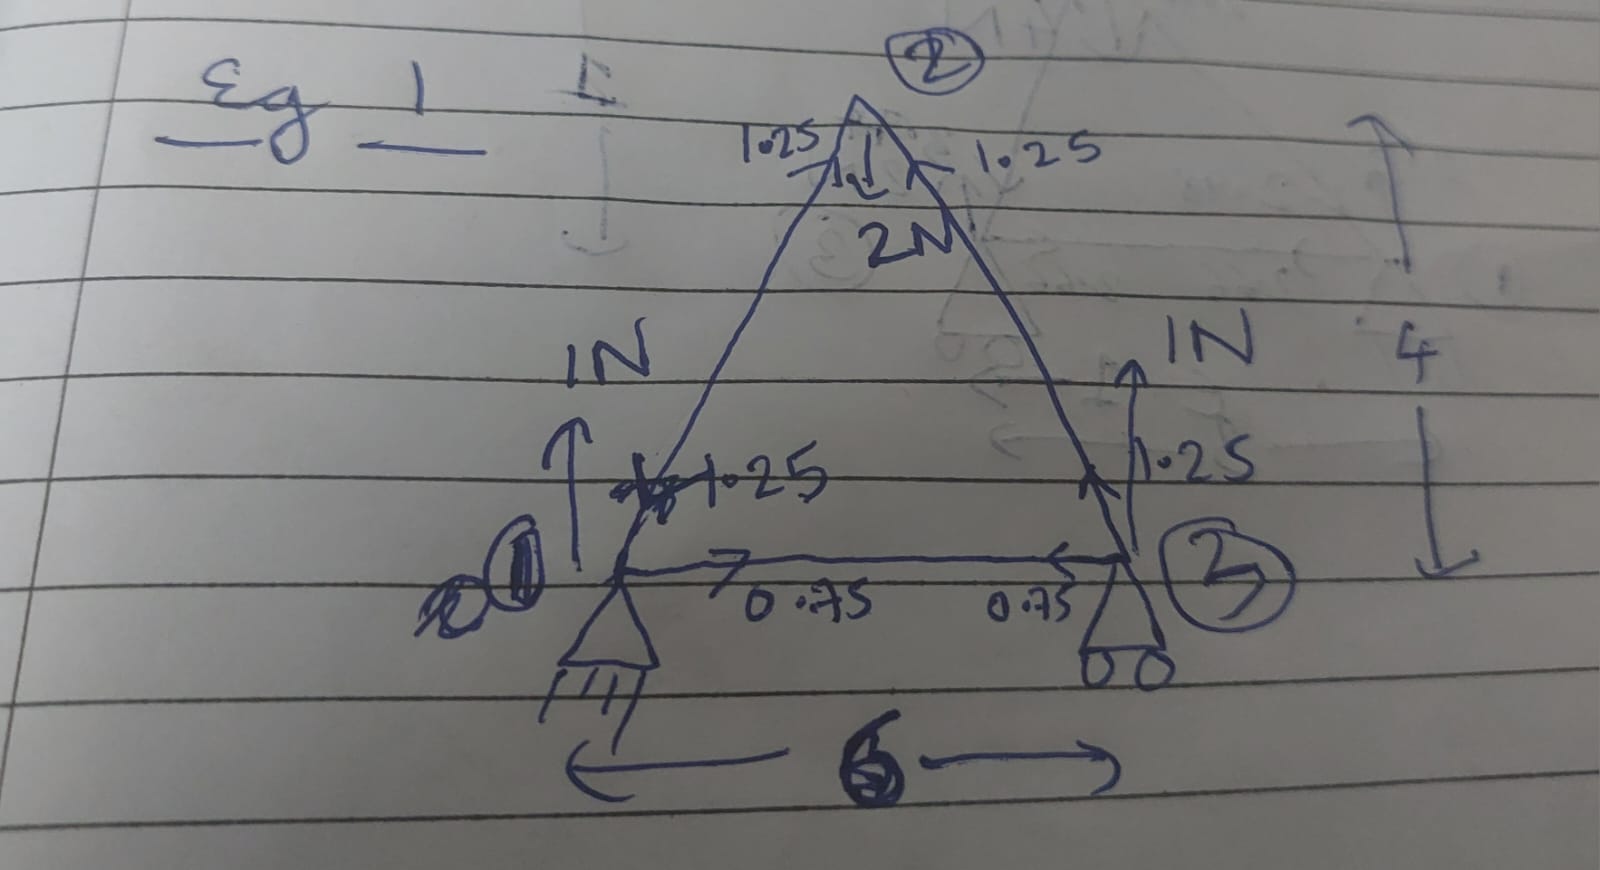 Eg 1
2
1.25 1.25
2N
1N 1N
4
1.25 1.25
1 3
0.75 0.75
6